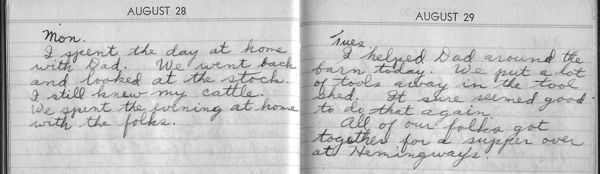 AUGUST 28
Mon.
I spent the day at home
with Dad. We went back
and looked at the stock.
I still knew my cattle.
We spent the evening at home
with the folks.
AUGUST 29
Tues.
I helped Dad around the
barn today. We put a lot
of tools away in the tool
shed. It sure seemed good
to do that again.
All of our folks got
together for a supper over
at Hemingway's.